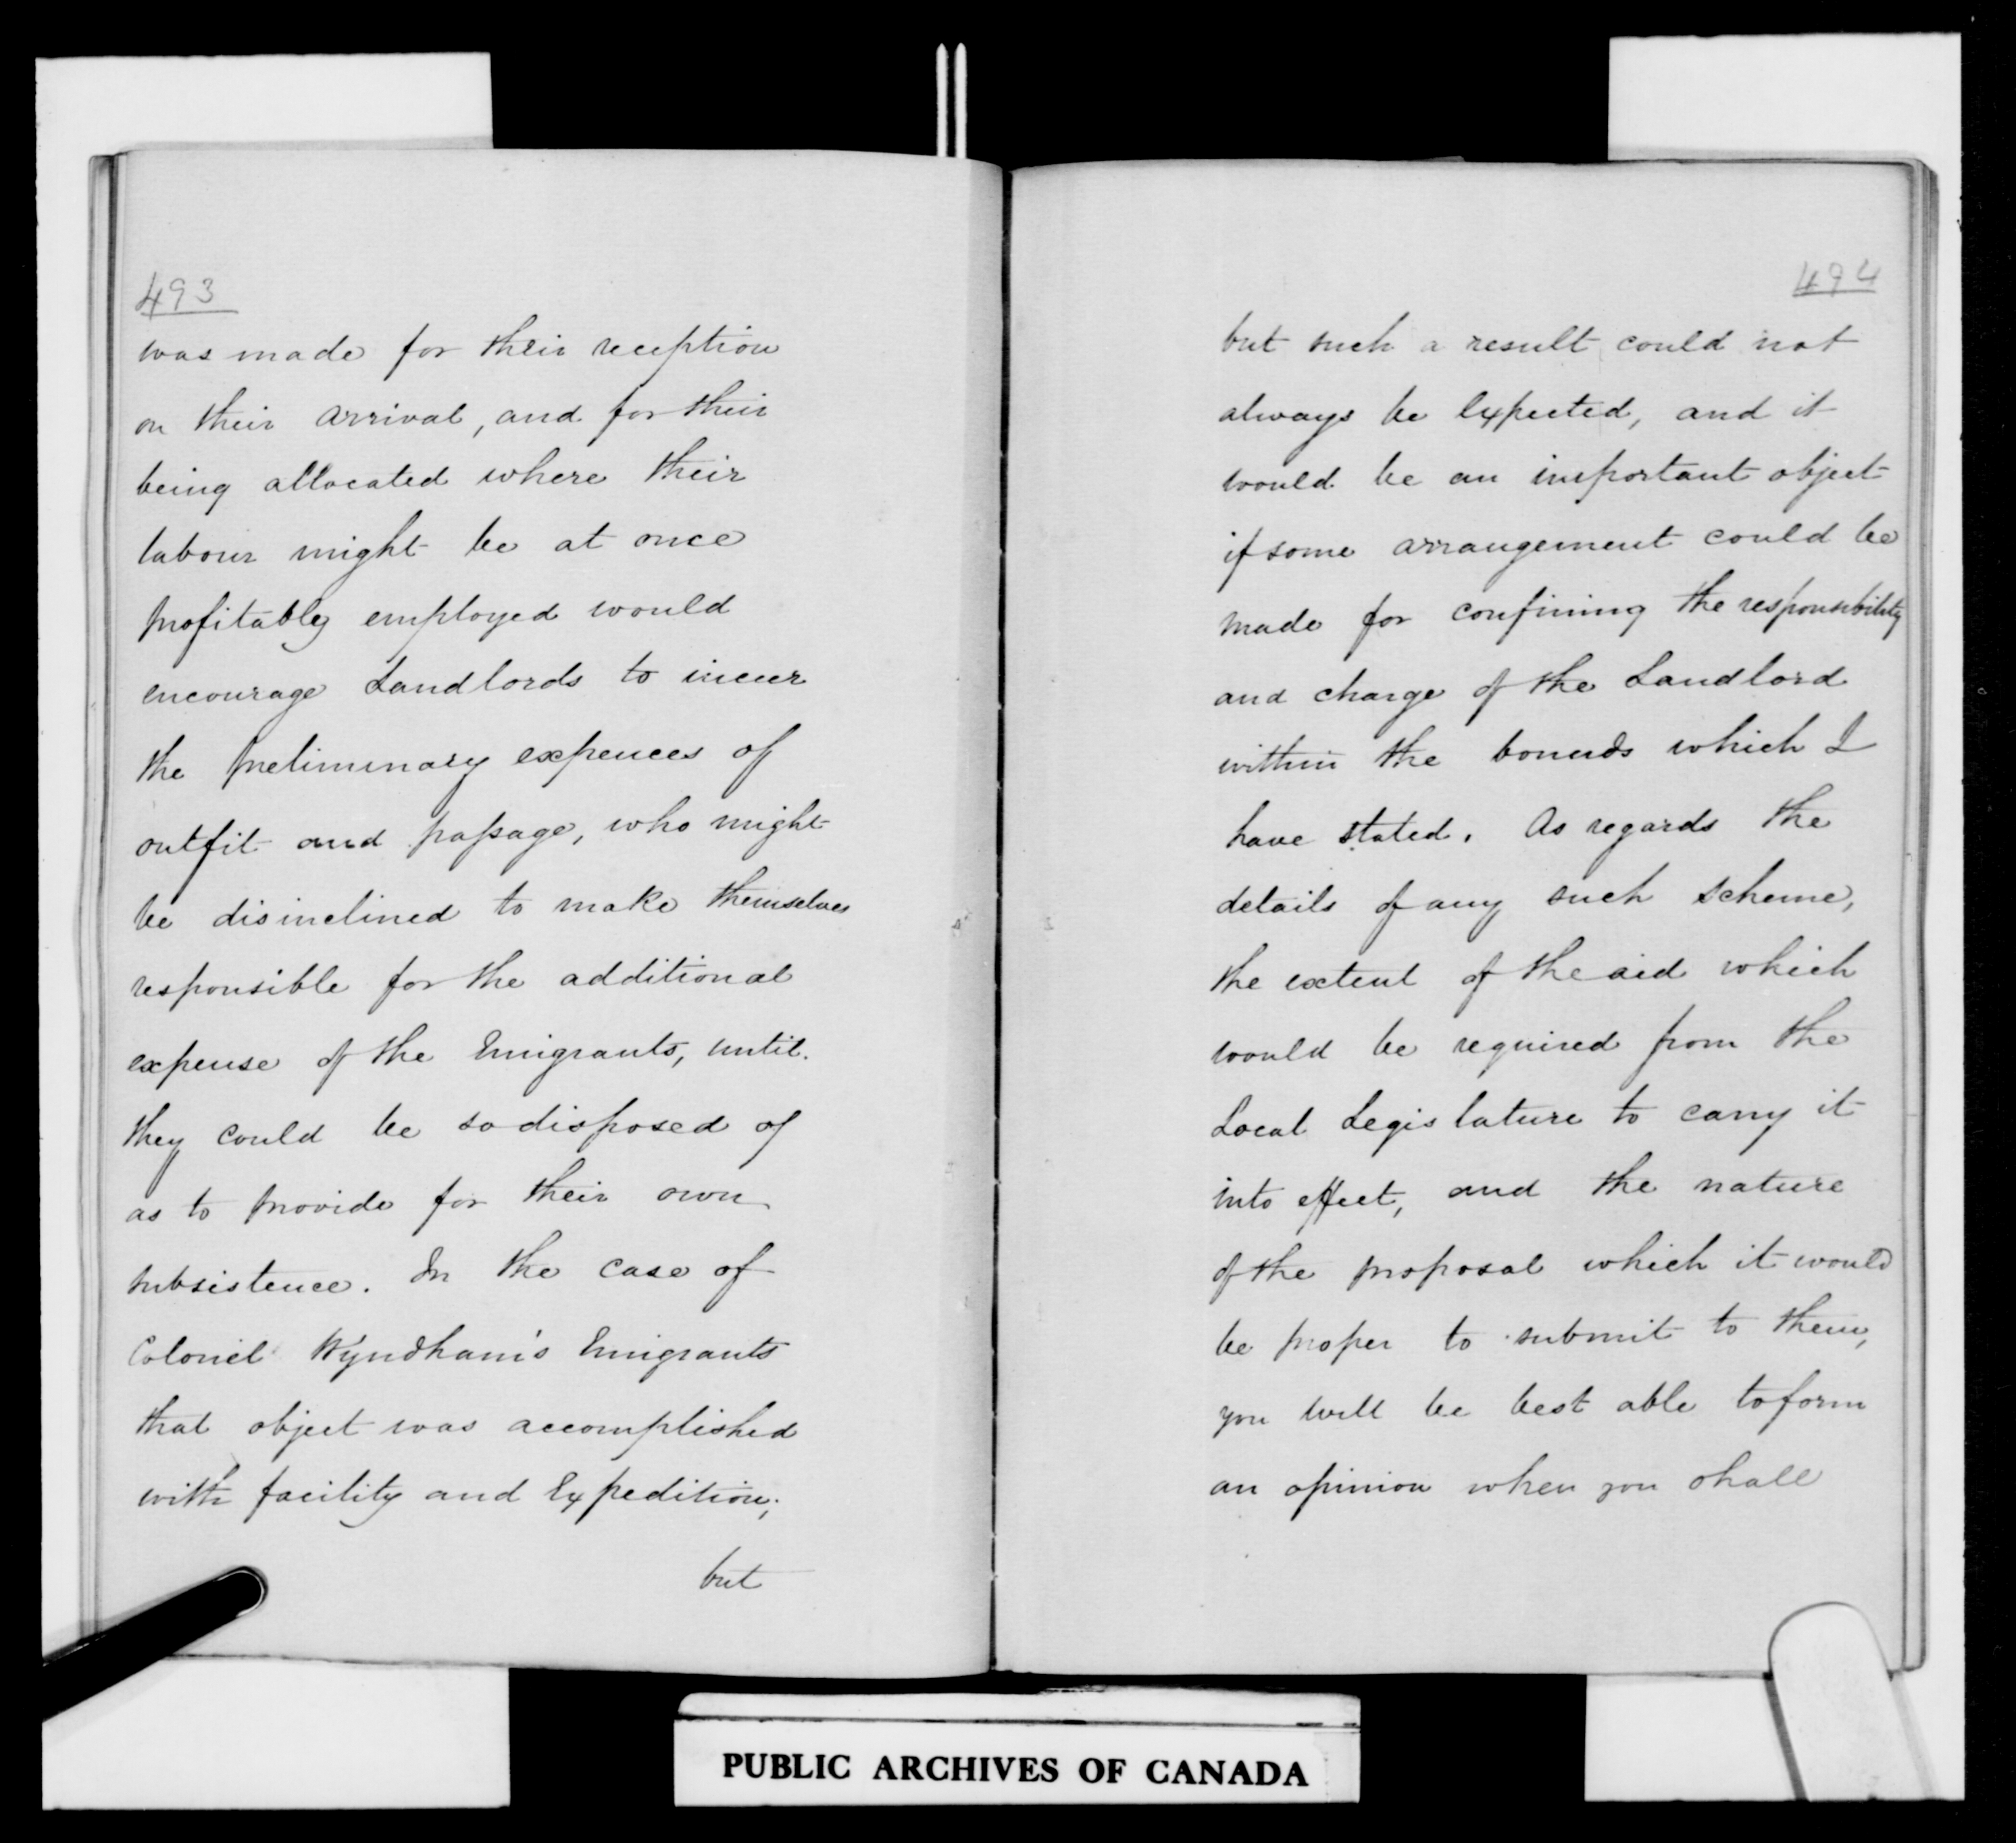 493
was made for their reception
on their arrival, and for their
being allocated where their
labour might be at once
profitably employed would
encourage Landlords to incur
the preliminary expences of
outfit and passage, who might
be disinclined to make themselves
responsible for the additional
expense of the Emigrants, until.
they could be so disposed of
as to provide for their own
subsistence. In the case of
Colonel Wyndham's Emigrants
that object was accomplished
with facility and Expedition;
but
494
but such a result could not
always be Expected, and it
would be an important object
if some arrangement could be
made for confining the responsibility
and charge of the Landlord
within the bounds which I
have stated. As regards the
details of any such scheme,
the extent of the aid which
would be required from the
Local Legislature to carry it
into effect, and the nature
of the proposal which it would
be proper to submit to them,
you will be best able to form
an opinion when you shall
PUBLIC ARCHIVES OF CANADA